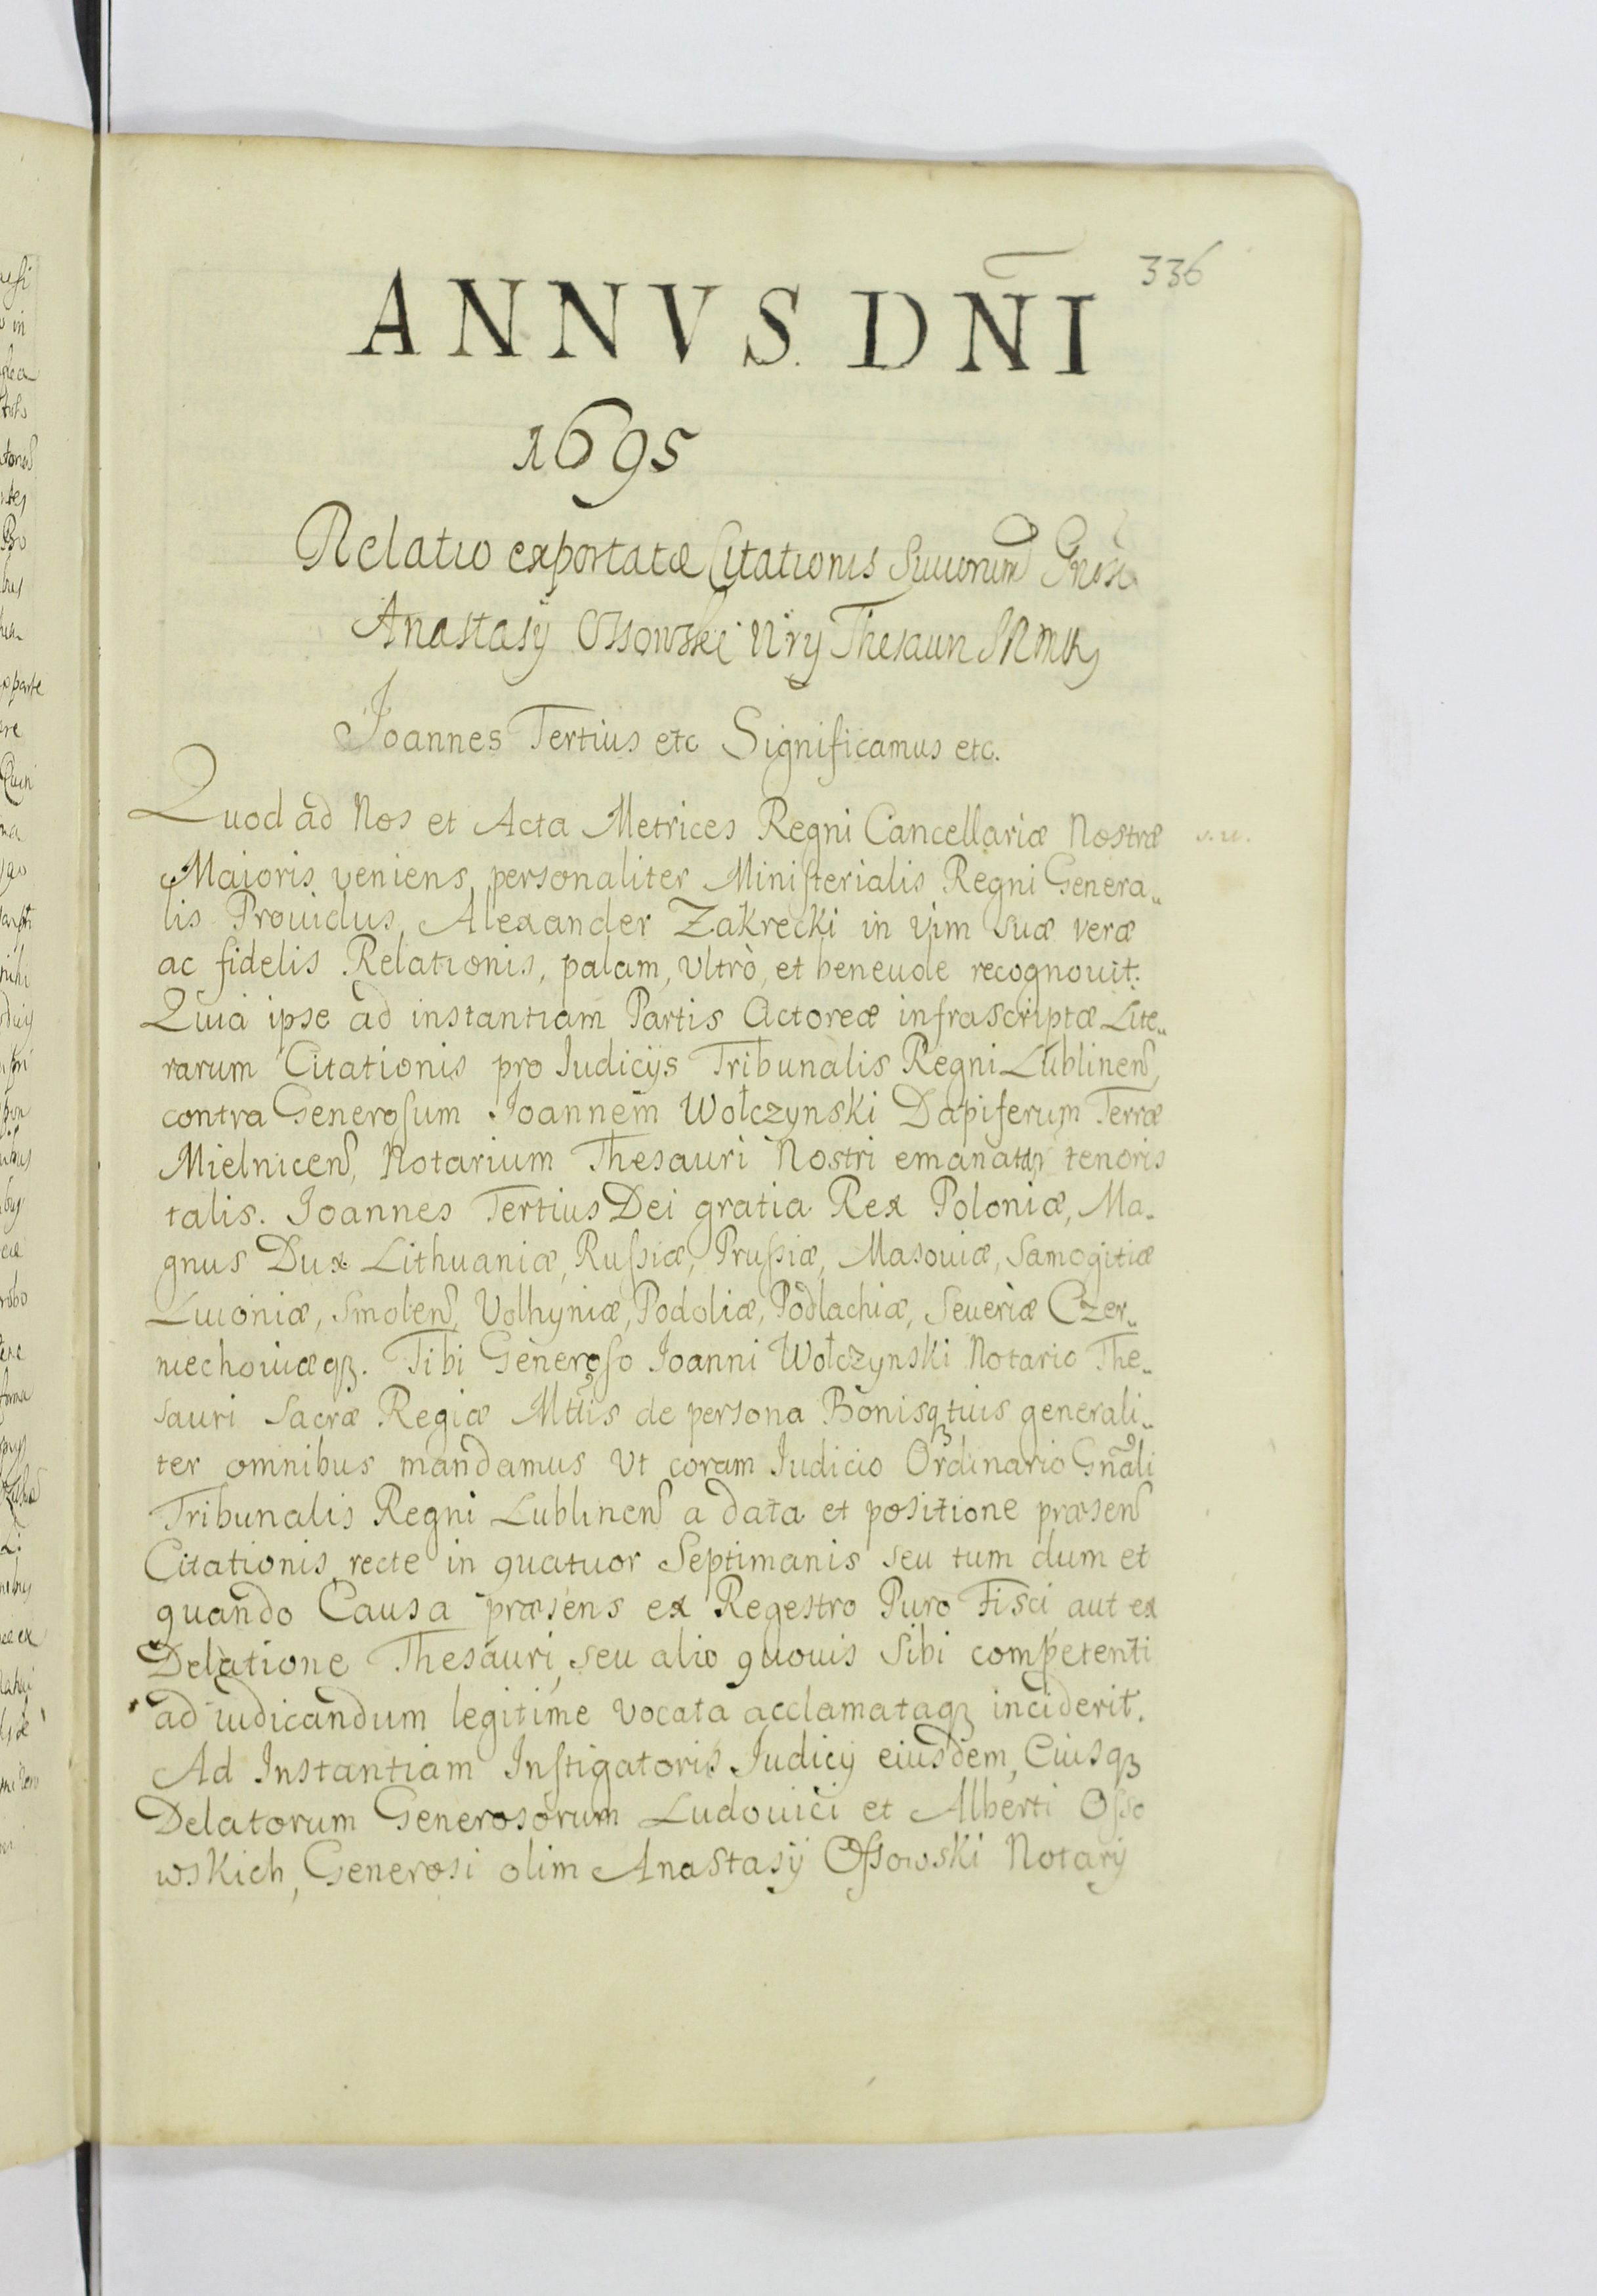 336
ANNVS DÑI
1695
Relatio exportatæ Citationis
Anastasÿ Ossowski Thesauri
Joannes Tertius etc Significamus etc.
Quod ad Nos et Acta Metrices Regni Cancellariæ Nostræ
Maioris veniens personaliter Ministerialis Regni Genera„
lis Prouidus, Alexander Zakrecki in vim suæ veræ
ac fidelis Relationis, palam, Vltrò, et beneuole recognouit:
Quia ipse ad instantiam Partis Actoreæ infrascriptæ Lite„
rarum Citationis pro Iudicijs Tribunalis Regni Lublinens,
contra Generosum Joannem Wołczynski Dapiferum Terræ
Mielnicens, Notarium Thesauri Nostri tenoris
talis. Joannes Tertius Dei gratia Rex Poloniæ, Ma„
gnus Dux Lithuaniæ, Russiæ, Prussiæ, Masouiæ, Samogitiæ
Liuoniæ, Smolens, Volhyniæ, Podoliæ, Podlachiæ, Seueriæ Czer„
niechouiæqȝ. Tibi Generoso Joanni Wołczynski Notario The„
sauri Sacræ Regiæ Mttis de persona Bonisqȝ tuis generali„
ter omnibus mandamus Vt coram Iudicio Ordinario Gñali
Tribunalis Regni Lublinens a data et positione præsens
Citationis recte in quatuor Septimanis seu tum dum et
quando Causa præsens ex Regestro Puro Fisci aut ex
Delatione Thesauri, seu alio quouis sibi competenti
ad iudicandum legitime vocata acclamataqȝ inciderit.
Ad Instantiam Instigatoris Judicÿ eiusdem, Eiusqȝ
Delatorum Generosorum Ludouici et Alberti Osso
wskich, Generosi olim Anastasÿ Ossowski Notarÿ